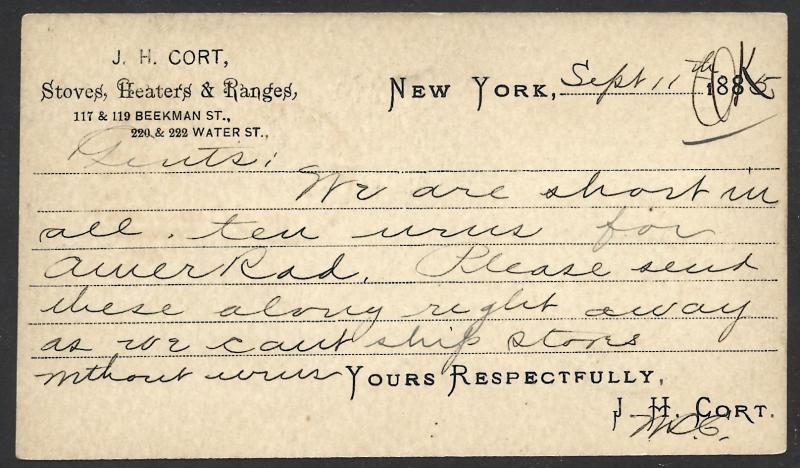 J. H. CORT,
Stoves, Heaters & Ranges,
117 & 119 BEEKMAN ST.,
220 & 222 WATER ST.,
NEW YORK, Sept 11th 1885
OK
Gents:
We are short in
all. ten urns for
Amer Rad. Please send
these along right away
as we cant ship stoves
without urns YOURS RESPECTFULLY,
J. H. CORT.